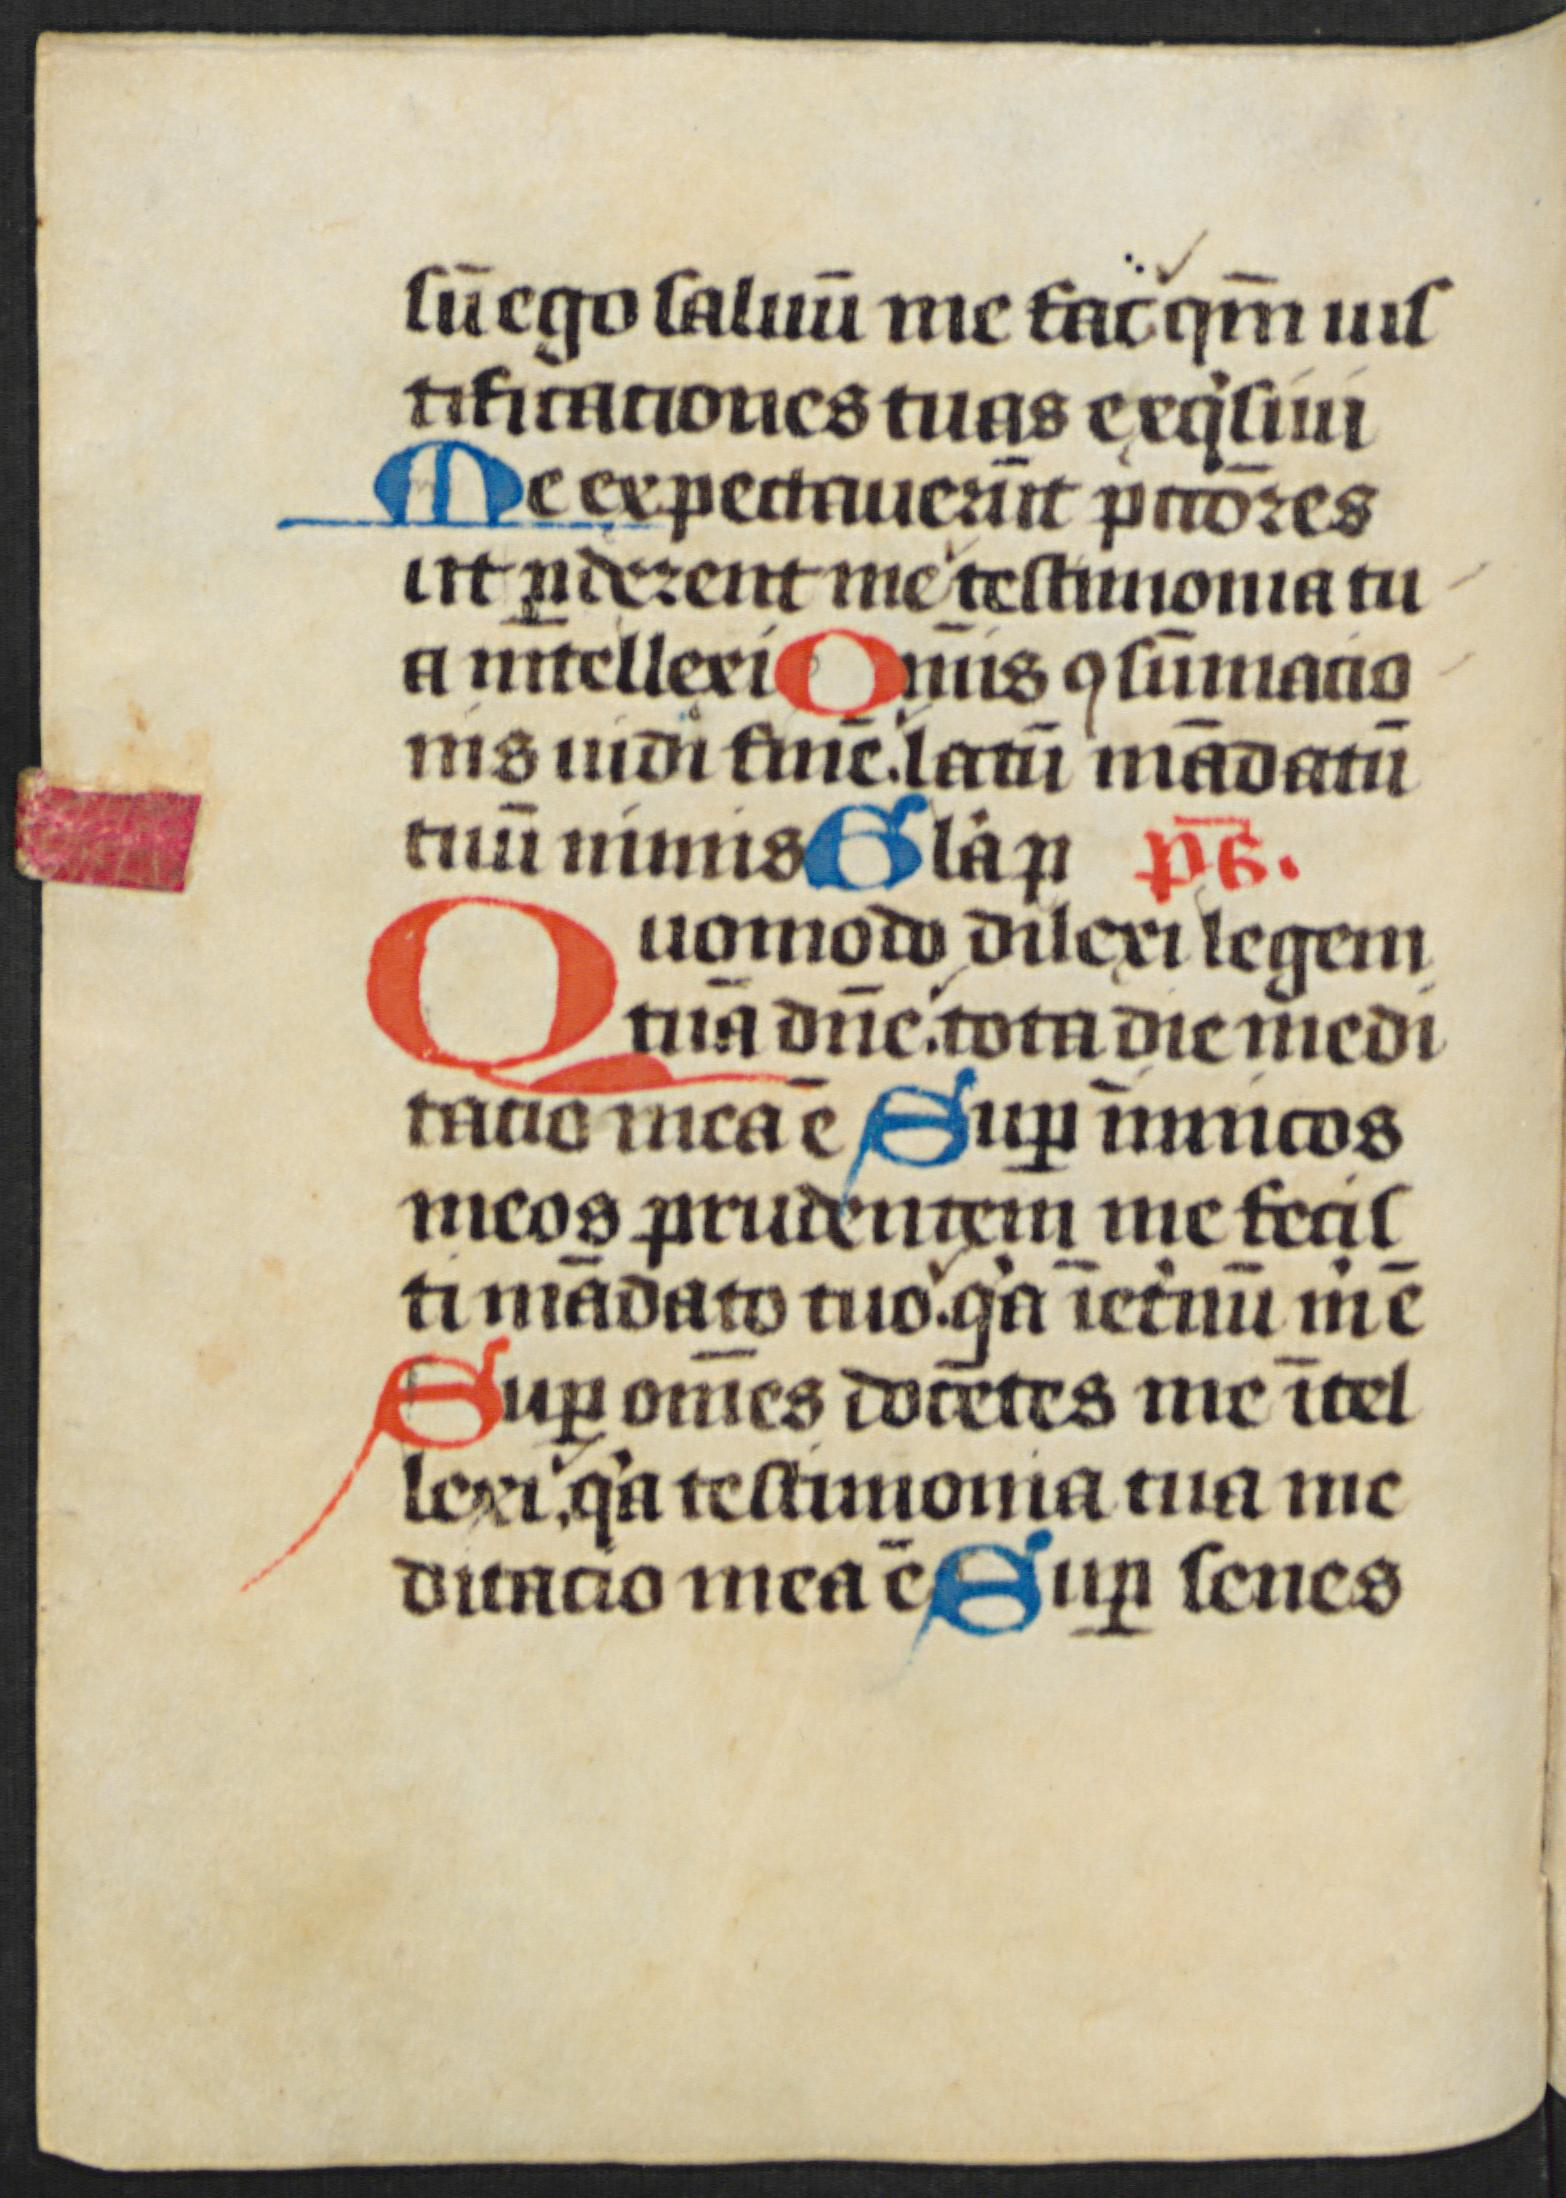 sū ego saluū me fac qm̄ ius
tificationes tuas exqͥsiui
Me expectauerūt pctōres
ut p̱derent me testimonia tu
a intellexi Om̄is ꝯsūmacio
nis uidi finē. latū mādatū
tuū nimis Gla̍ p ps̄.
Quomodo dilexi legem
tuā dn̄e. tota die medi
tatio mea ē Sup̱ inimicos
meos prudentem me fecis
ti mādato tuo. qͥa ī etͥnū mͥ ē
Sup̱ om̄es docētes me ītel
lexi, qͥa testimonia tua me
ditacio mea ē Sup̱ senes